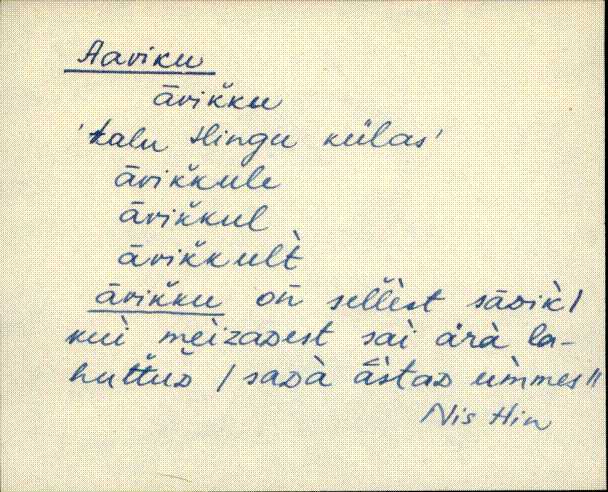 Aaviku
āvikˇku
'talu Hingu külas'
āvikˇkule
āvikˇkul
āvikˇkult̀
āvikˇku on̄ sellèst sāᴅik̀/
kui mèizaᴅest sai ärà la-
huťťuᴅ / saᴅà āstaᴅ ùmmes //
Nis Hin